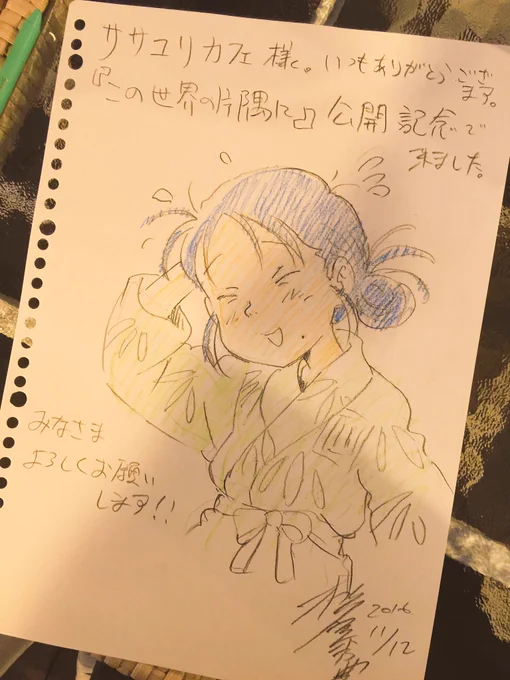 ササユリカフェ様へ。いつもありがとうござい
ます。
『この世界の片隅に』公開記念で
来ました。
みなさま
よろしくお願い
します!!
2016
11/12